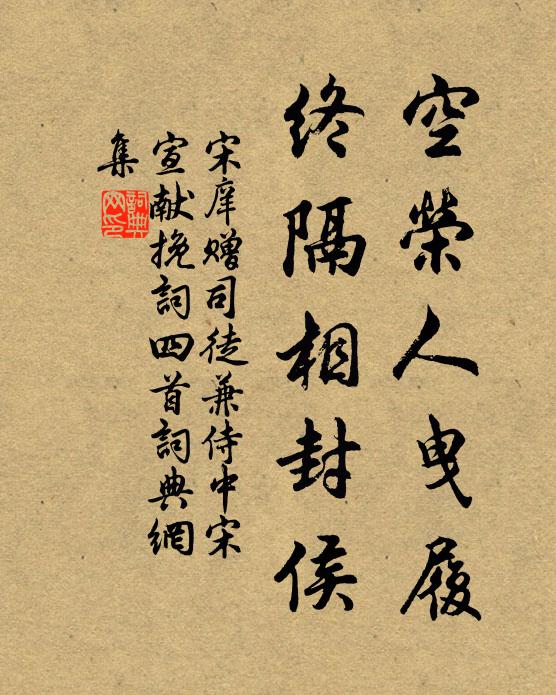 空榮人曳履
終隔相封侯
宋庠贈司徒兼侍中宋
宣献挽詞四首詞典網
集
詞典網印